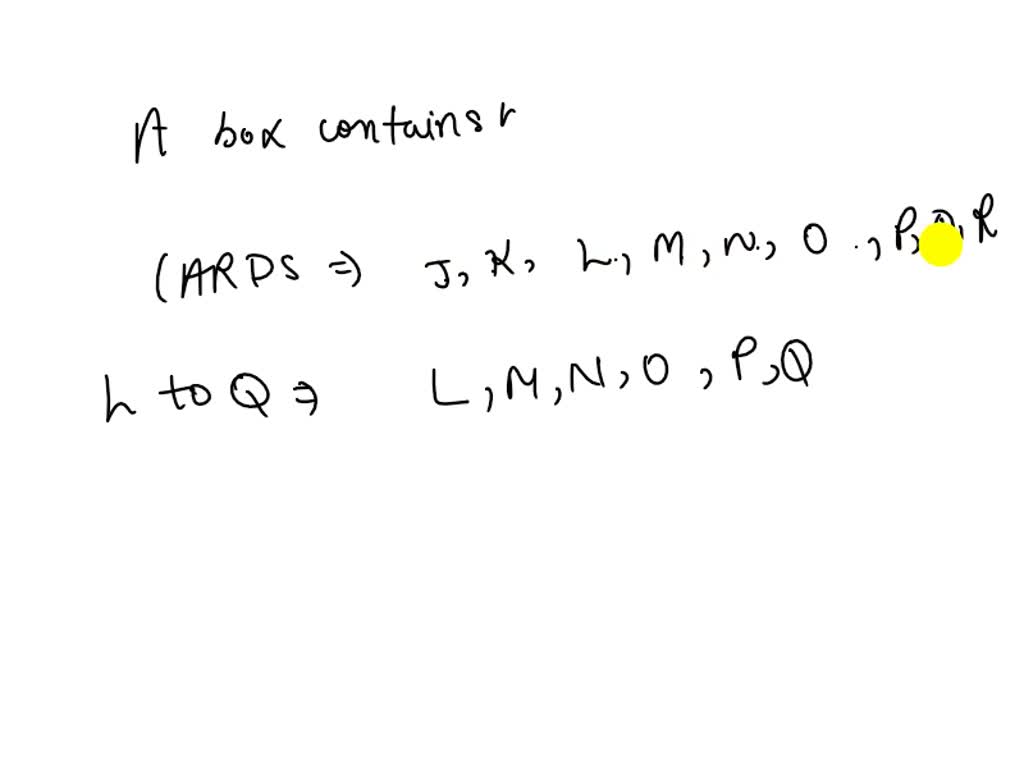 A box contains
CARDS ⇒ J, K, L, M, N, O, P, Q, R
L to Q ⇒ L, M, N, O, P, Q